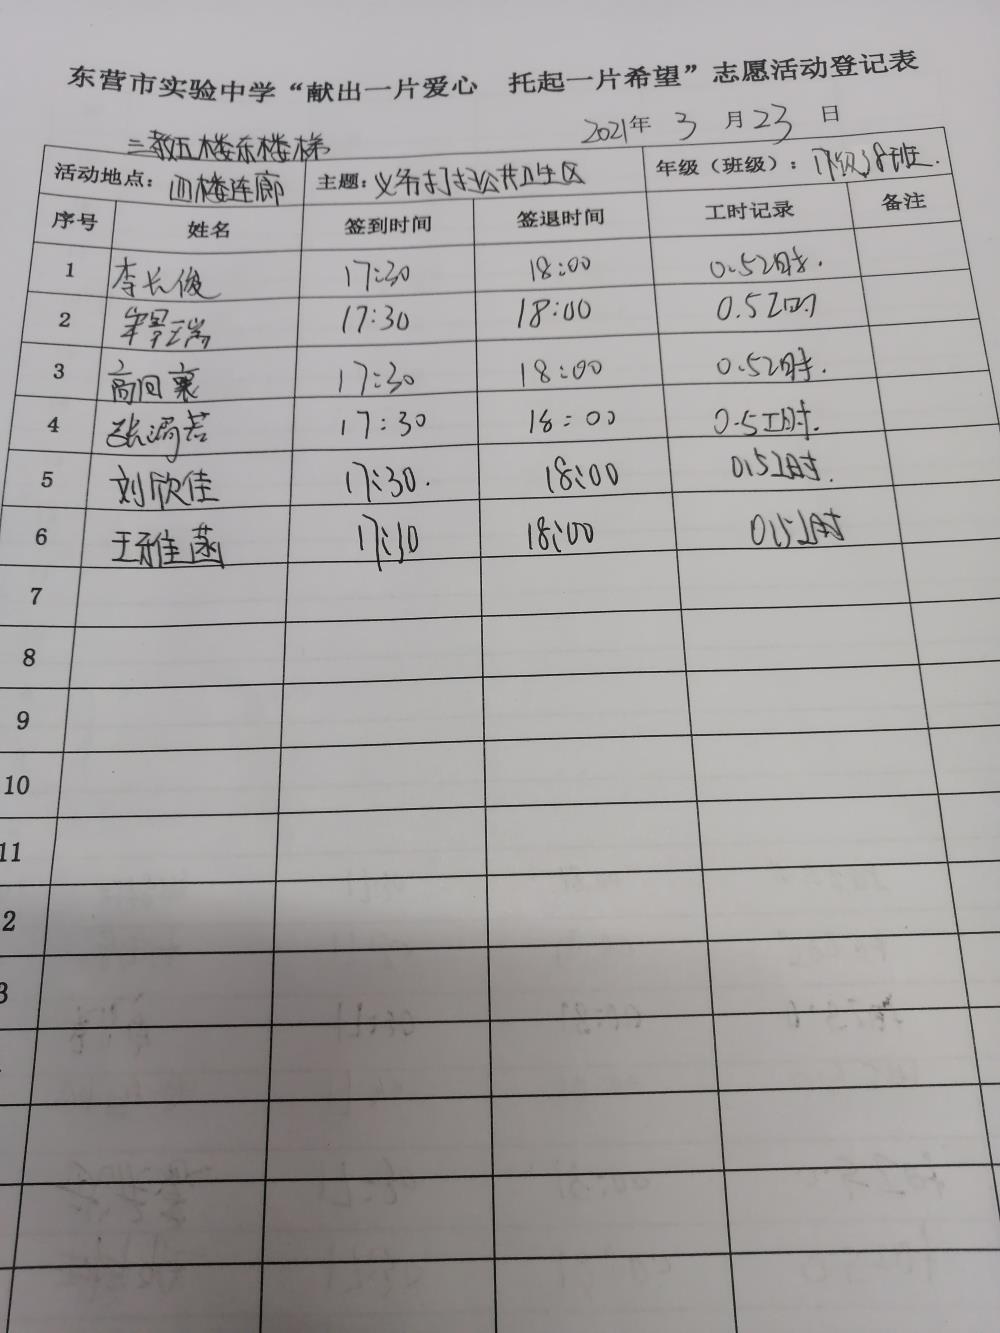 东营市实验中学“献出一片爱心 托起一片希望”志愿活动登记表
2021年 3 月 23 日
三教五楼东楼梯
活动地点: 四楼连廊 主题: 义务打扫公共卫生区 年级（班级）: 17级38班.
序号 姓名 签到时间 签退时间 工时记录 备注
1 李长俊 17:30 18:00 0.5工时.
2 瑞 17:30 18:00 0.5工时
3 高回襄 17:30 18:00 0.5工时.
4 张若 17:30 18:00 0.5工时.
5 刘欣佳 17:30. 18:00 0.5工时.
6 王雅菡 17:30 18:00 0.5工时
7
8
9
10
11
2
3